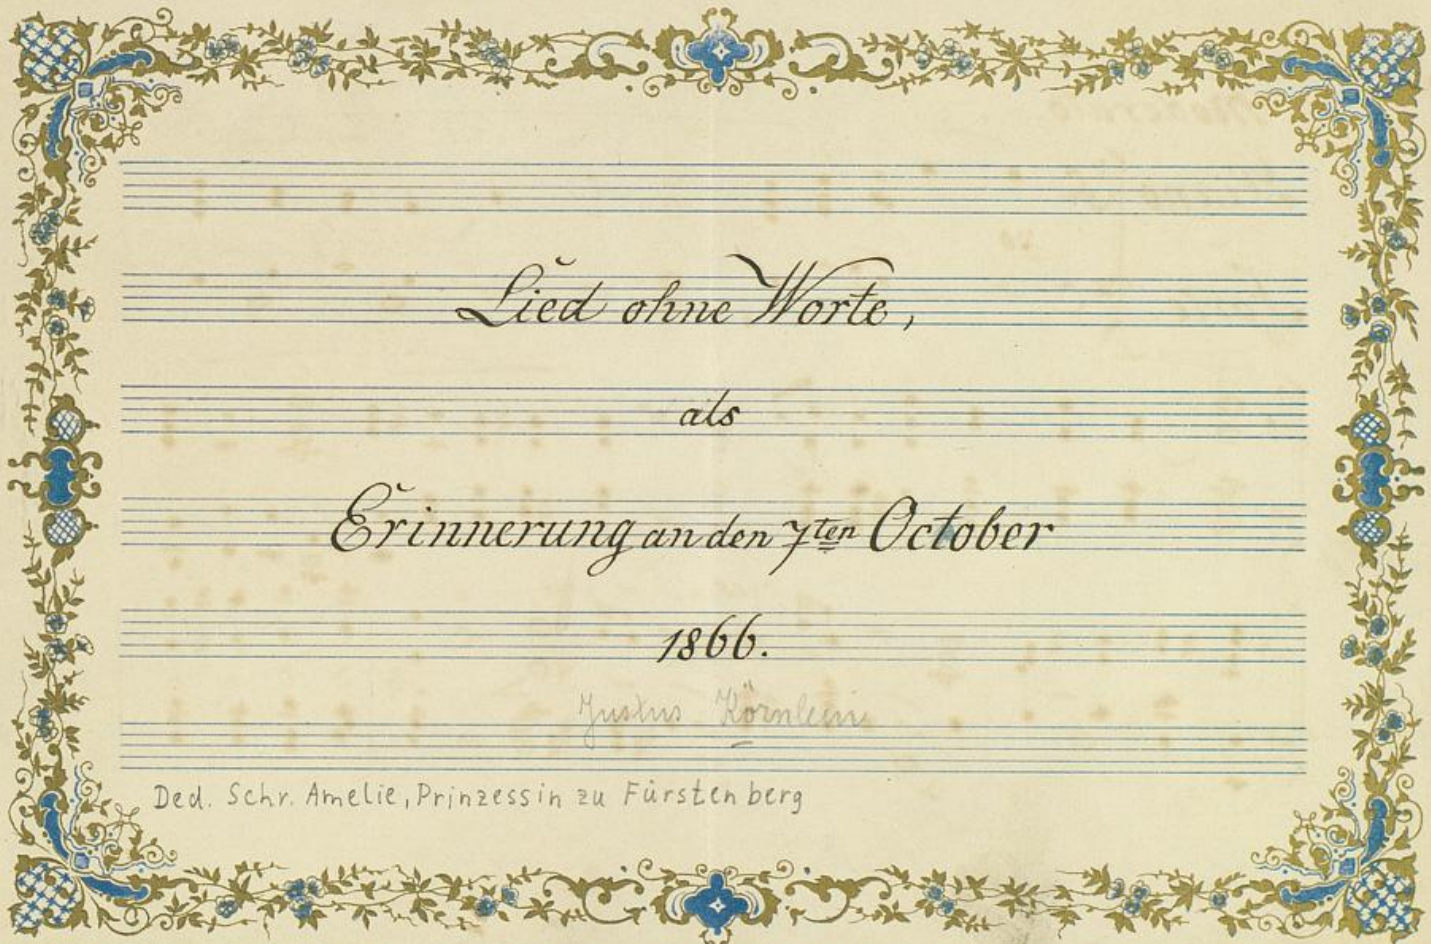 Lied ohne Worte,
als
Erinnerung an den 7ten October
1866.
Justus Körnlein
Ded. Schr. Amelie, Prinzessin zu Fürstenberg